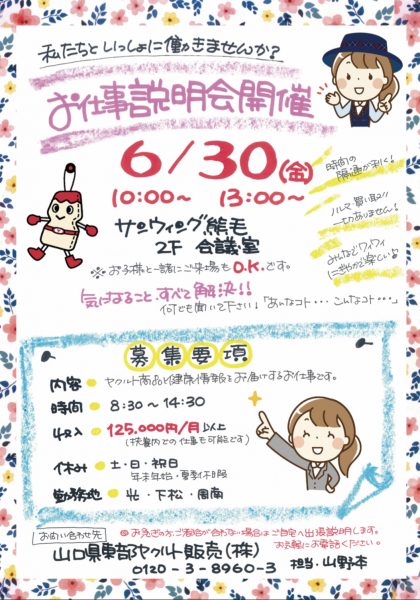 私たちといっしょに働きませんか?
お仕事説明会開催
6/30(金)
10:00〜 13:00〜
時間の
融通が利く!
サンウィング熊毛
2F 会議室
ノルマ・買い取り
一切ありません!
※お子様と一緒にご来場もO.K.です。
みんなでワイワイ
にぎやかで楽しい♪
気になること、すべて解決!!
何でも聞いて下さい♩「あんなコト・・・こんなコト・・・」
募集要項
内容 ● ヤクルト商品と健康情報をお届けするお仕事です。
時間 ● 8:30〜14:30
収入 ● 125.000円/月以上
(扶養内での仕事も可能です)
休み ● 土・日・祝日
年末年始・夏季休暇
勤務地 ● 光・下松・周南
お問い合わせ先
※お急ぎの方、ご都合が合わない場合はご自宅へ出張説明します。
お気軽にお電話ください。
山口県東部ヤクルト販売(株)
0120-3-8960-3 担当.山野本